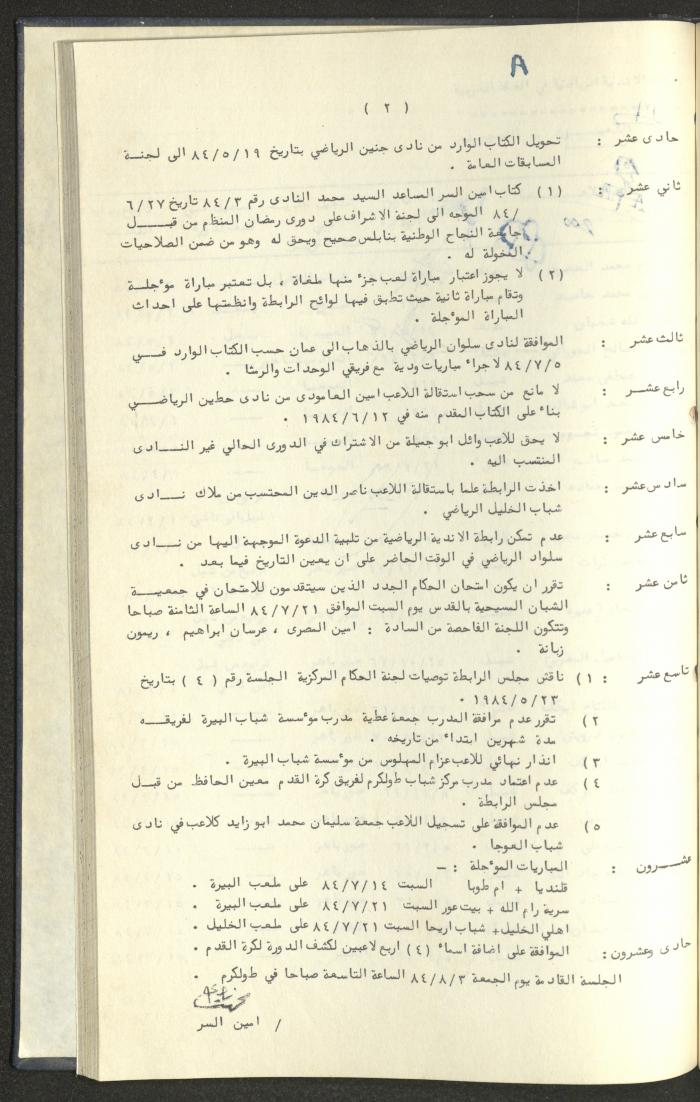 A
( ٢ )
حادى عشر : تحويل الكتاب الوارد من نادى جنين الرياضي بتاريخ ٨٤/٥/١٩ الى لجنة
المسابقات العامة .
ثاني عشر : (١) كتاب امين السر المساعد السيد محمد النادى رقم ٨٤/٣ تاريخ ٦/٢٧
/٨٤ الموجه الى لجنة الاشراف على دورى رمضان المنظم من قبل
جامعة النجاح الوطنية بنابلس صحيح ويحق له وهو من ضمن الصلاحيات
المخولة له .
(٢) لا يجوز اعتبار مباراة لعب جزء منها ملغاة ، بل تعتبر مباراة مؤجلة
وتقام مباراة ثانية حيث تطبق فيها لوائح الرابطة وانظمتها على احداث
المباراة المؤجلة .
ثالث عشر : الموافقة لنادى سلوان الرياضي بالذهاب الى عمان حسب الكتاب الوارد في
٨٤/٧/٥ لاجراء مباريات ودية مع فريقي الوحدات والرمثا .
رابع عشر : لا مانع من سحب استقالة اللاعب امين العامودى من نادى حطين الرياضي
بناء على الكتاب المقدم منه في ١٩٨٤/٦/١٢ .
خامس عشر : لا يحق للاعب وائل ابو جميلة من الاشتراك في الدورى الحالي غير النادى
المنتسب اليه .
سادس عشر : اخذت الرابطة علما باستقالة اللاعب ناصر الدين المحتسب من ملاك نادى
شباب الخليل الرياضي .
سابع عشر : عدم تمكن رابطة الاندية الرياضية من تلبية الدعوة الموجهة اليها من نادى
سلواد الرياضي في الوقت الحاضر على ان يعين التاريخ فيما بعد .
ثامن عشر : تقرر ان يكون امتحان الحكام الجدد الذين سيتقدمون للامتحان في جمعية
الشبان المسيحية بالقدس يوم السبت الموافق ٨٤/٧/٢١ الساعة الثامنة صباحا
وتتكون اللجنة الفاحصة من السادة : امين المصرى ، عرسان ابراهيم ، ريمون
زبانة .
تاسع عشر : ١) ناقش مجلس الرابطة توصيات لجنة الحكام المركزية الجلسة رقم ( ٤ ) بتاريخ
١٩٨٤/٥/٢٣ .
٢) تقرر عدم مرافقة المدرب جمعة عطية مدرب مؤسسة شباب البيرة لفريقه
مدة شهرين ابتداء من تاريخه .
٣) انذار نهائي للاعب عزام المهلوس من مؤسسة شباب البيرة .
٤) عدم اعتماد مدرب مركز شباب طولكرم لفريق كرة القدم معين الحافظ من قبل
مجلس الرابطة .
٥) عدم الموافقة على تسجيل اللاعب جمعة سليمان محمد ابو زايد كلاعب في نادى
شباب العوجا .
عشرون : المباريات المؤجلة : -
قلنديا + ام طوبا السبت ٨٤/٧/١٤ على ملعب البيرة .
سرية رام الله + بيت عور السبت ٨٤/٧/٢١ على ملعب البيرة .
اهلي الخليل + شباب اريحا السبت ٨٤/٧/٢١ على ملعب الخليل .
حادى وعشرون : الموافقة على اضافة اسماء (٤) اربع لاعبين لكشف الدورة لكرة القدم .
الجلسة القادمة يوم الجمعة ٨٤/٨/٣ الساعة التاسعة صباحا في طولكرم .
/ امين السر